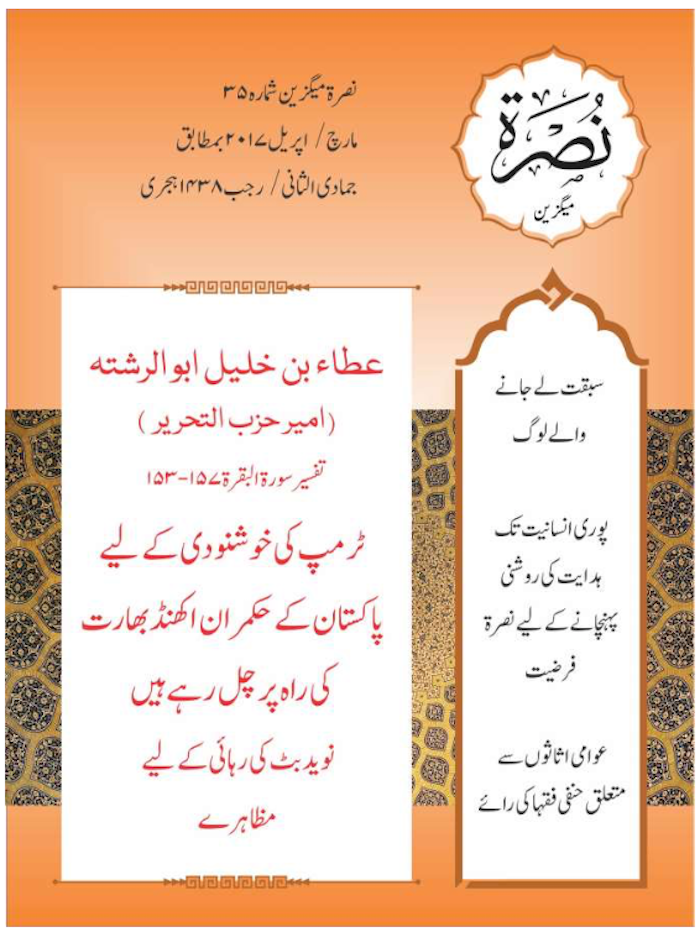 نُصْرَة
میگزین
نصرۃ میگزین شمارہ ۳۵
مارچ / اپریل ۲۰۱۷ بمطابق
جمادی الثانی / رجب ۱۴۳۸ ہجری
عطاء بن خلیل ابو الرشتہ
(امیر حزب التحریر)
تفسیر سورۃ البقرۃ ۱۵۷-۱۵۳
ٹرمپ کی خوشنودی کے لیے
پاکستان کے حکمران اکھنڈ بھارت
کی راہ پر چل رہے ہیں
نوید بٹ کی رہائی کے لیے
مظاہرے
سبقت لے جانے
والے لوگ
پوری انسانیت تک
ہدایت کی روشنی
پہنچانے کے لیے نصرۃ
فرضیت
عوامی اثاثوں سے
متعلق حنفی فقہا کی رائے